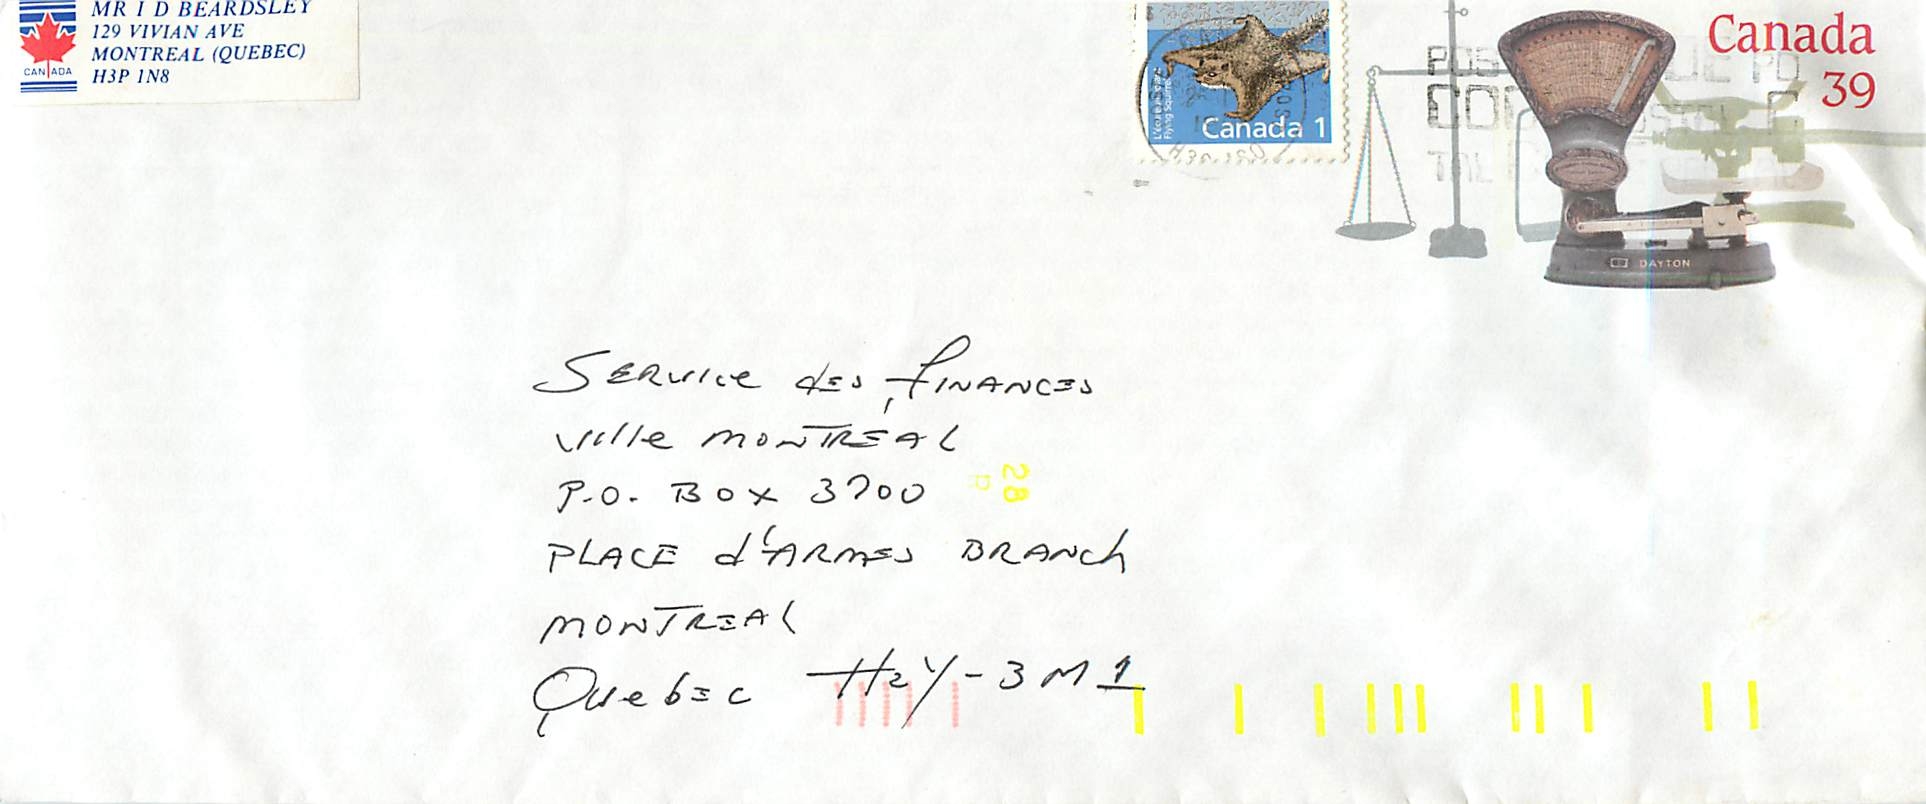 MR I D BEARDSLEY
129 VIVIAN AVE
MONTREAL (QUEBEC)
H3P 1N8
CANADA
L'écureuil volant
Flying Squirrel
Canada 1
Canada
39
DAYTON
SERVICE des FINANCES
Ville MONTREAL
P.O. BOX 3700
28
PLACE d'ARMES BRANCH
MONTREAL
QUEBEC H2Y-3M1